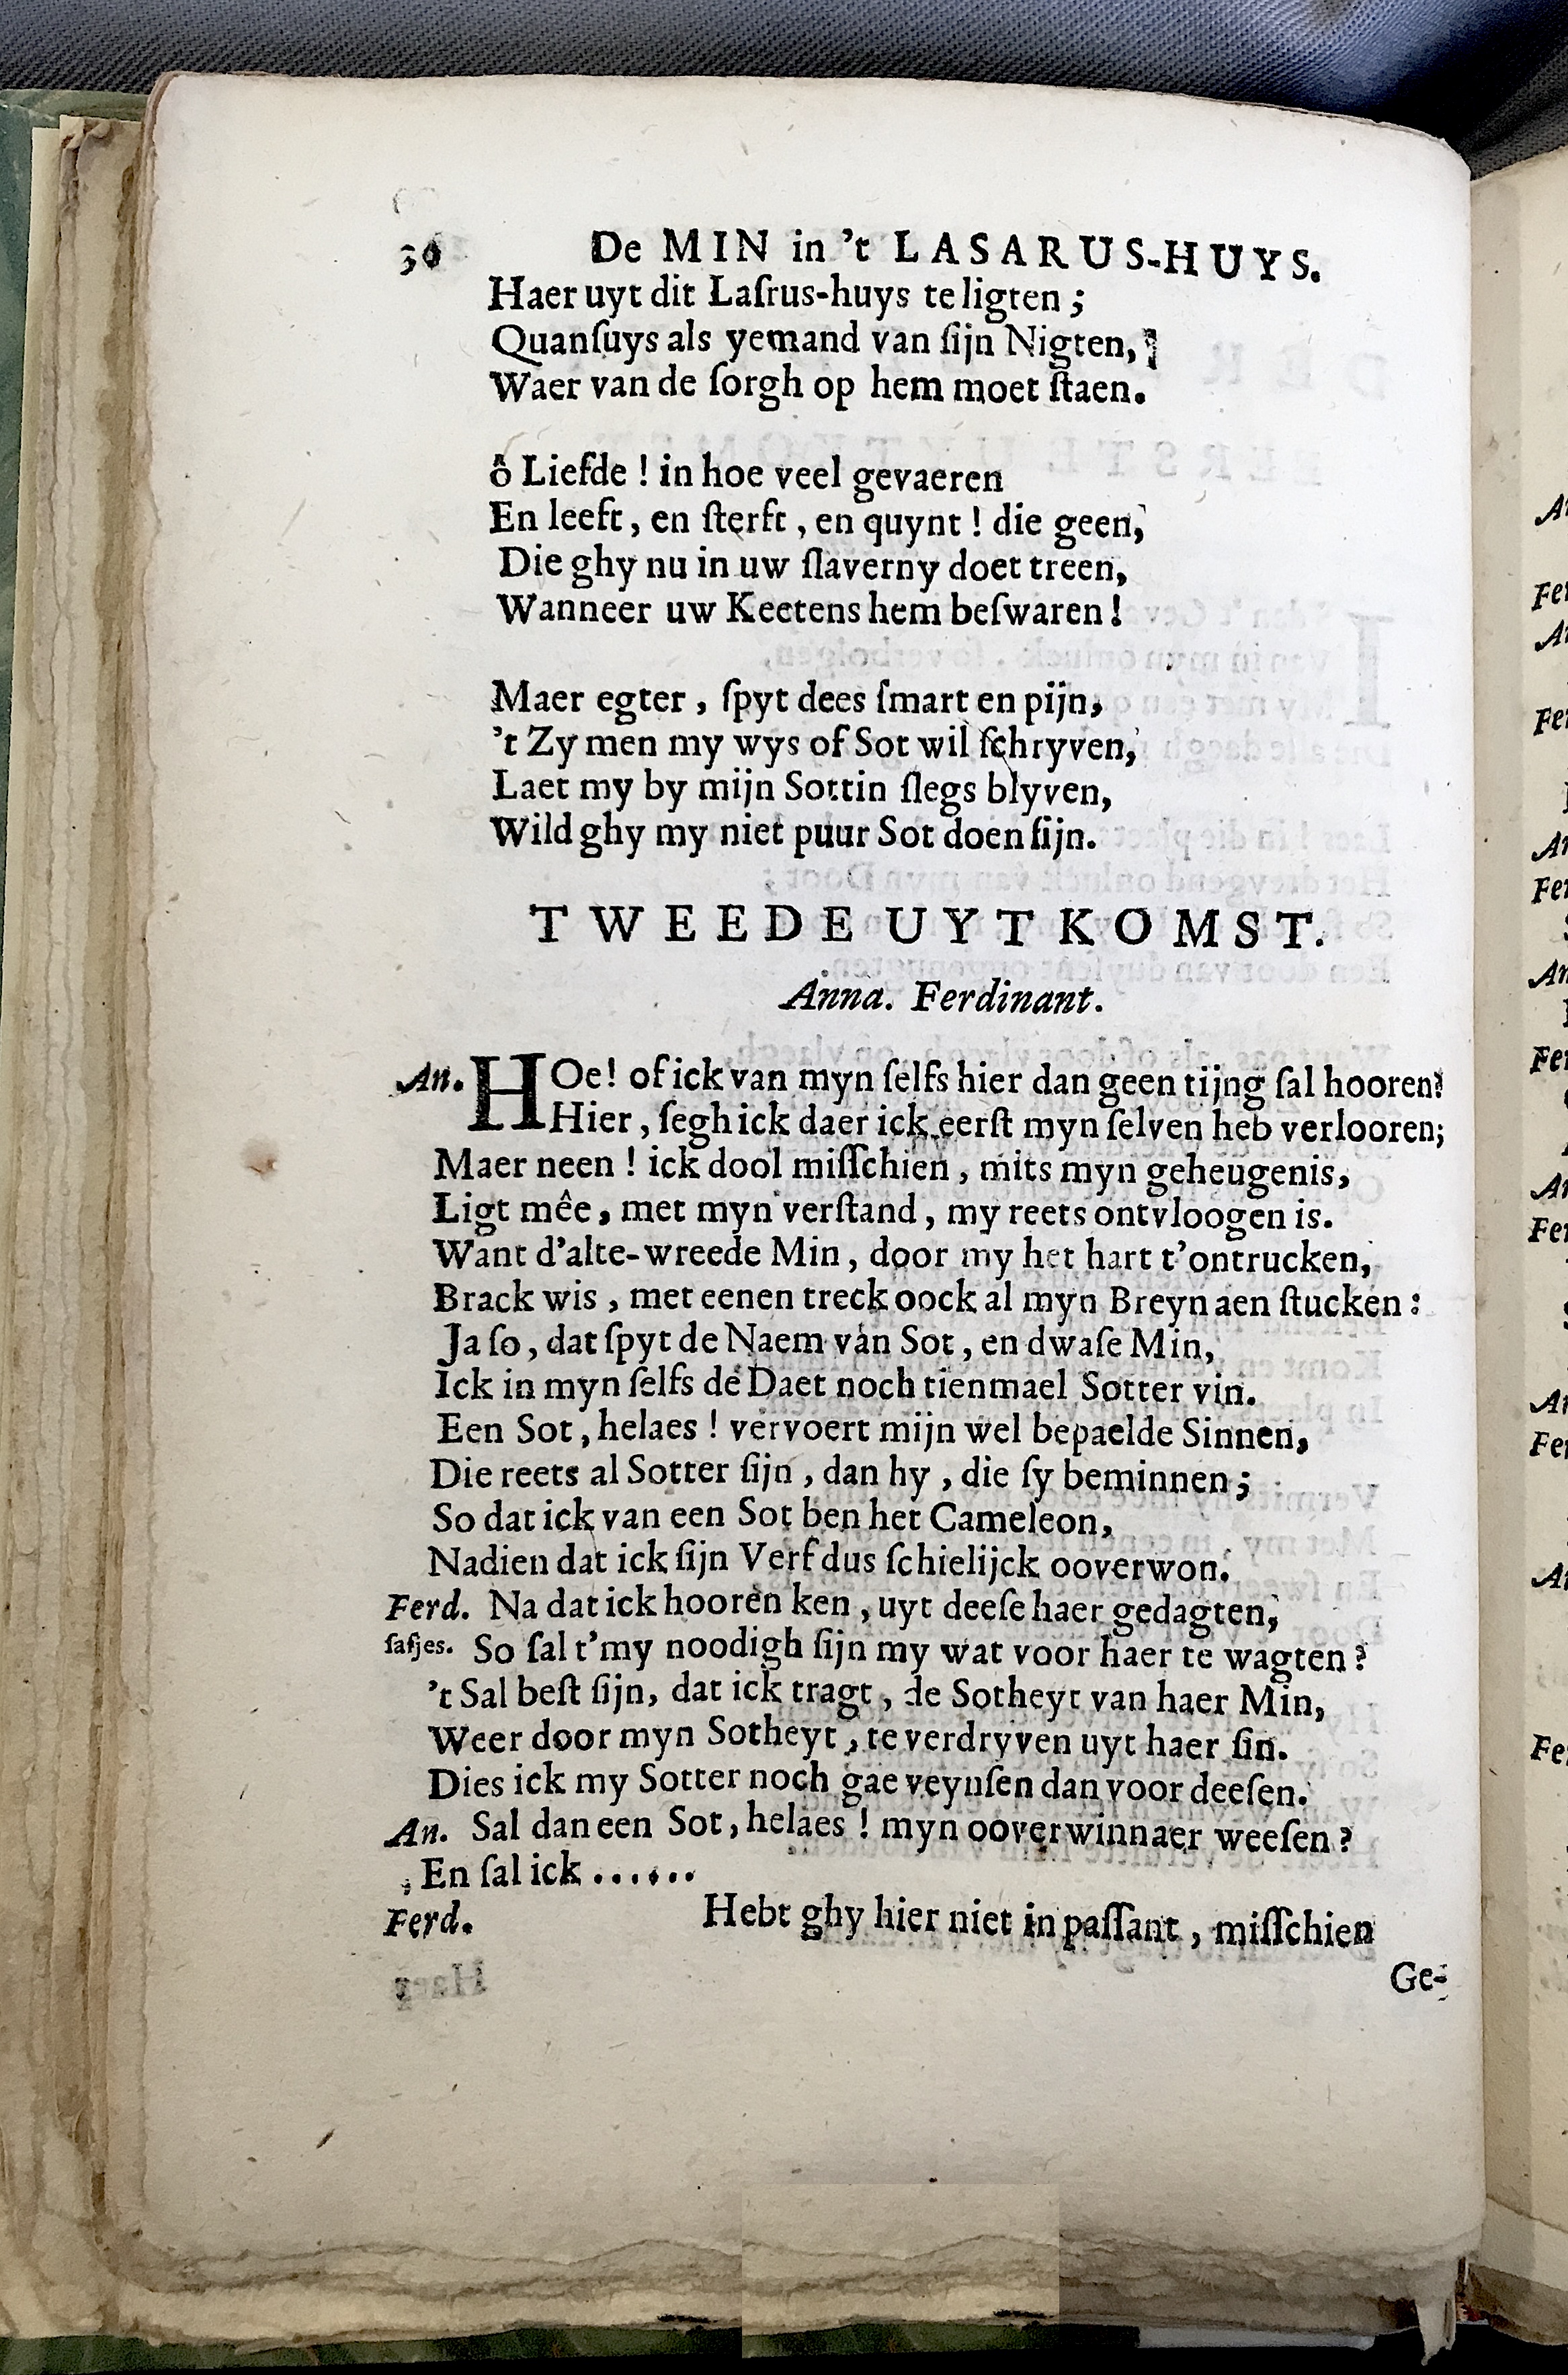 30 De MIN in 't LASARUS-HUYS.
Haer uyt dit Laſrus-huys te ligten ;
Quanſuys als yemand van ſijn Nigten,
Waer van de ſorgh op hem moet ſtaen.
ô Liefde ! in hoe veel gevaeren
En leeft, en ſterft, en quynt ! die geen,
Die ghy nu in uw ſlaverny doet treen,
Wanneer uw Keetens hem beſwaren !
Maer egter, ſpyt dees ſmart en pijn,
't Zy men my wys of Sot wil ſchryven,
Laet my by mijn Sottin ſlegs blyven,
Wild ghy my niet puur Sot doen ſijn.
TWEEDE UYTKOMST.
Anna. Ferdinant.
An. HOe! of ick van myn ſelfs hier dan geen tijng ſal hooren?
Hier, ſegh ick daer ick eerſt myn ſelven heb verlooren;
Maer neen ! ick dool miſſchien, mits myn geheugenis,
Ligt mêe, met myn verſtand, my reets ontvloogen is.
Want d'alte-wreede Min, door my het hart t'ontrucken,
Brack wis, met eenen treck oock al myn Breyn aen ſtucken :
Ja ſo, dat ſpyt de Naem van Sot, en dwaſe Min,
Ick in myn ſelfs de Daet noch tienmael Sotter vin.
Een Sot, helaes ! vervoert mijn wel bepaelde Sinnen,
Die reets al Sotter ſijn, dan hy, die ſy beminnen ;
So dat ick van een Sot ben het Cameleon,
Nadien dat ick ſijn Verf dus ſchielijck ooverwon.
Ferd. Na dat ick hooren ken, uyt deeſe haer gedagten,
ſafjes. So ſal t'my noodigh ſijn my wat voor haer te wagten ?
't Sal beſt ſijn, dat ick tragt, de Sotheyt van haer Min,
Weer door myn Sotheyt, te verdryven uyt haer ſin.
Dies ick my Sotter noch gae veynſen dan voor deeſen.
An. Sal dan een Sot, helaes ! myn ooverwinnaer weeſen ?
En ſal ick ......
Ferd. Hebt ghy hier niet in paſſant, miſſchien
Ge-